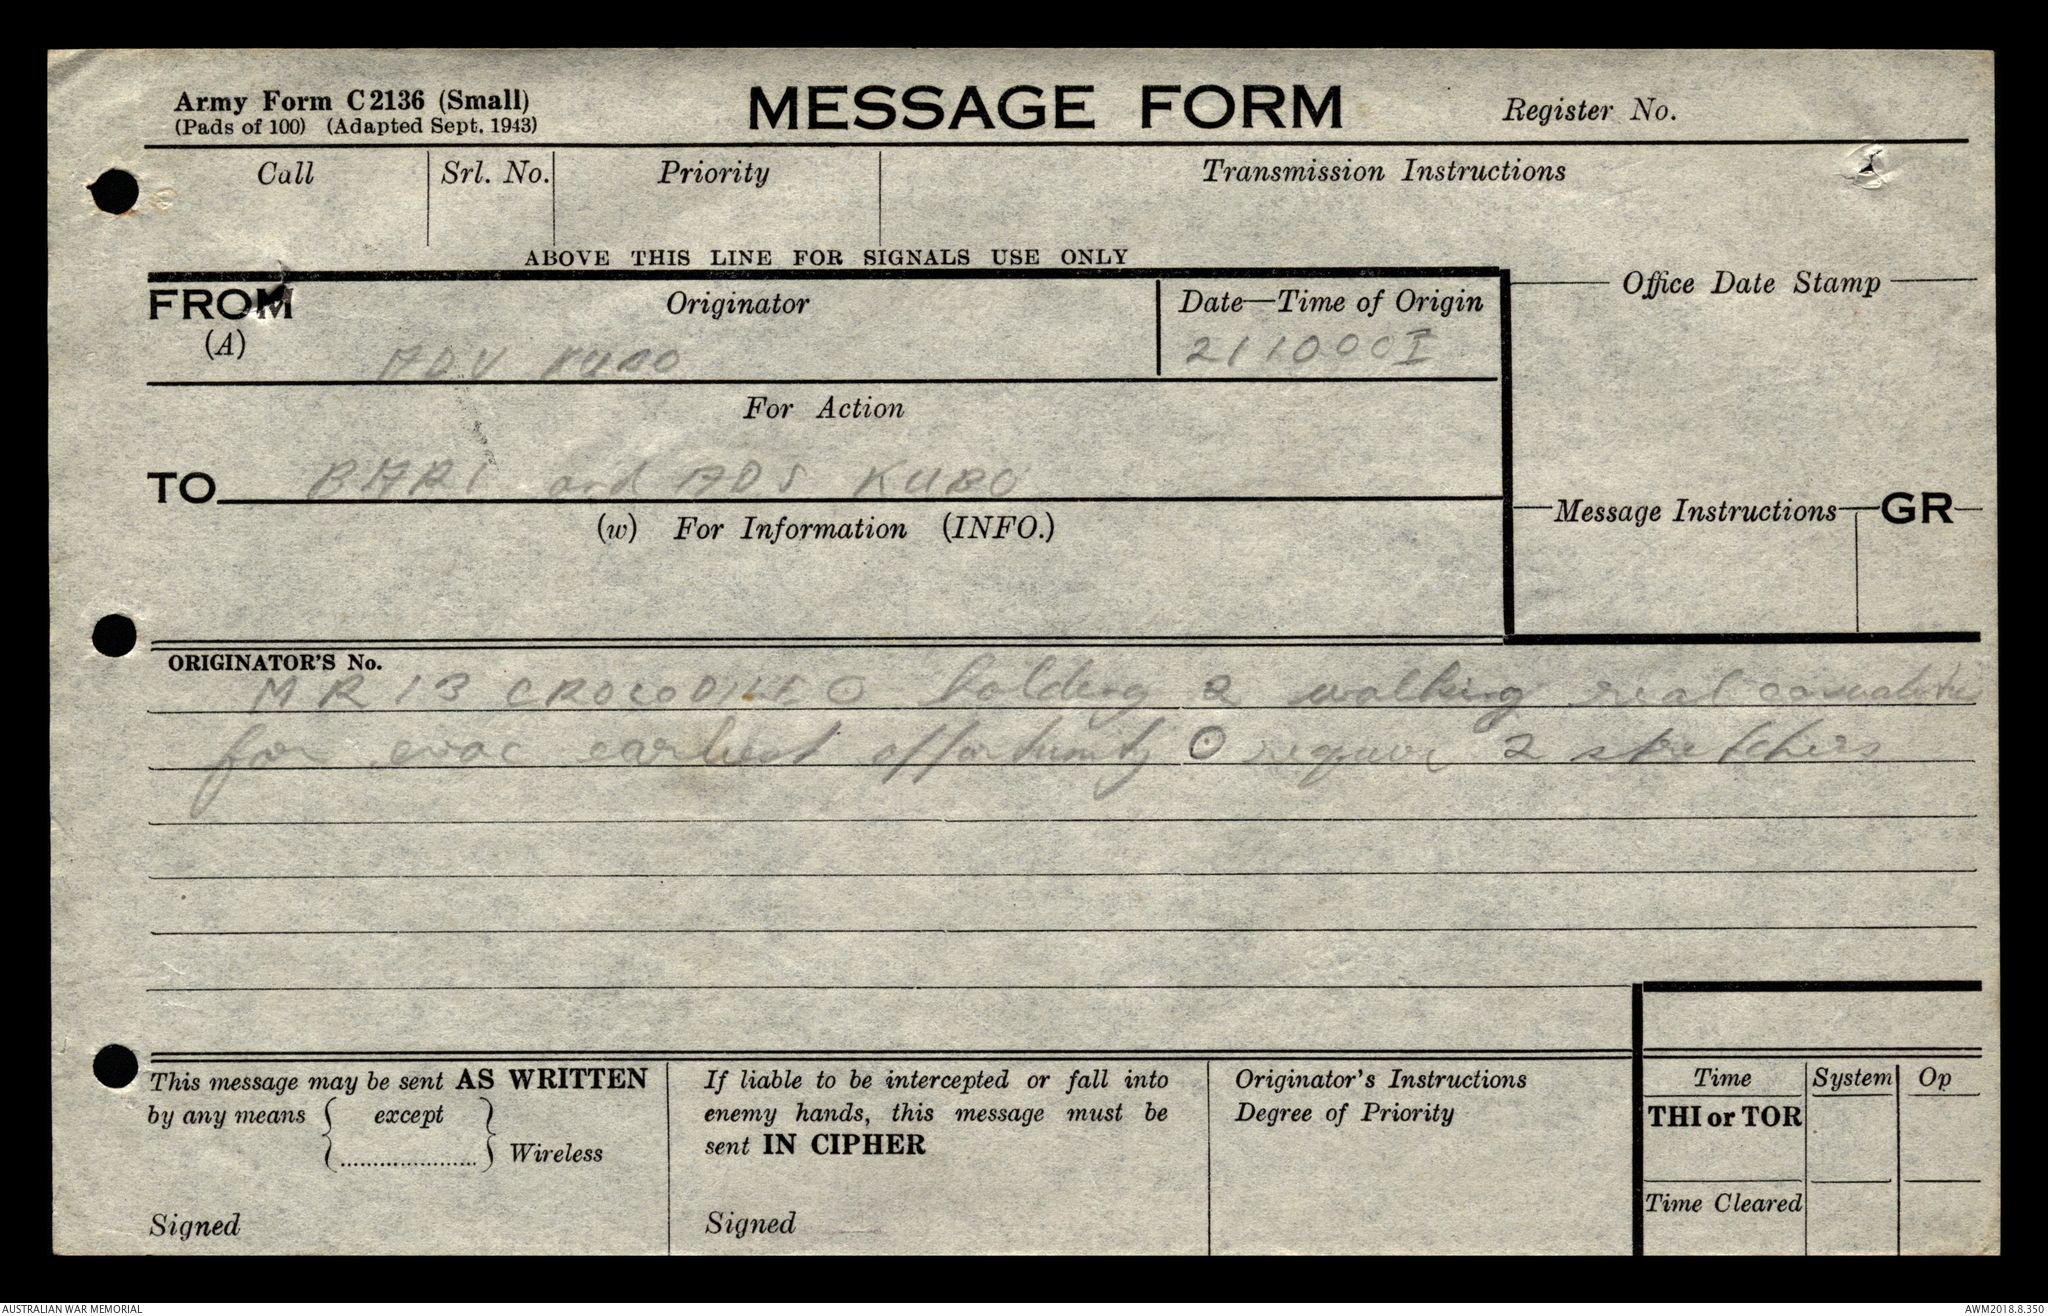 Army Form C2136 (Small)
(Pads of 100) (Adapted Sept. 1943)
MESSAGE FORM
Register No.
Call
Srl. No.
Priority
Transmission Instructions
ABOVE THIS LINE FOR SIGNALS USE ONLY
FROM
(A)
Originator
ADV KUBO
Date—Time of Origin
211000I
Office Date Stamp
For Action
TO
BARI and ADS KUBO
(w) For Information (INFO.)
Message Instructions
GR
ORIGINATOR'S No.
MR 13 CROCODILE ⊙ holding 2 walking real casualties
for evac earliest opportunity ⊙ require 2 stretchers
This message may be sent AS WRITTEN
by any means { except }
{.....................} Wireless
Signed
If liable to be intercepted or fall into
enemy hands, this message must be
sent IN CIPHER
Signed
Originator's Instructions
Degree of Priority
Time
System
Op
THI or TOR
Time Cleared
AUSTRALIAN WAR MEMORIAL
AWM2018.8.350